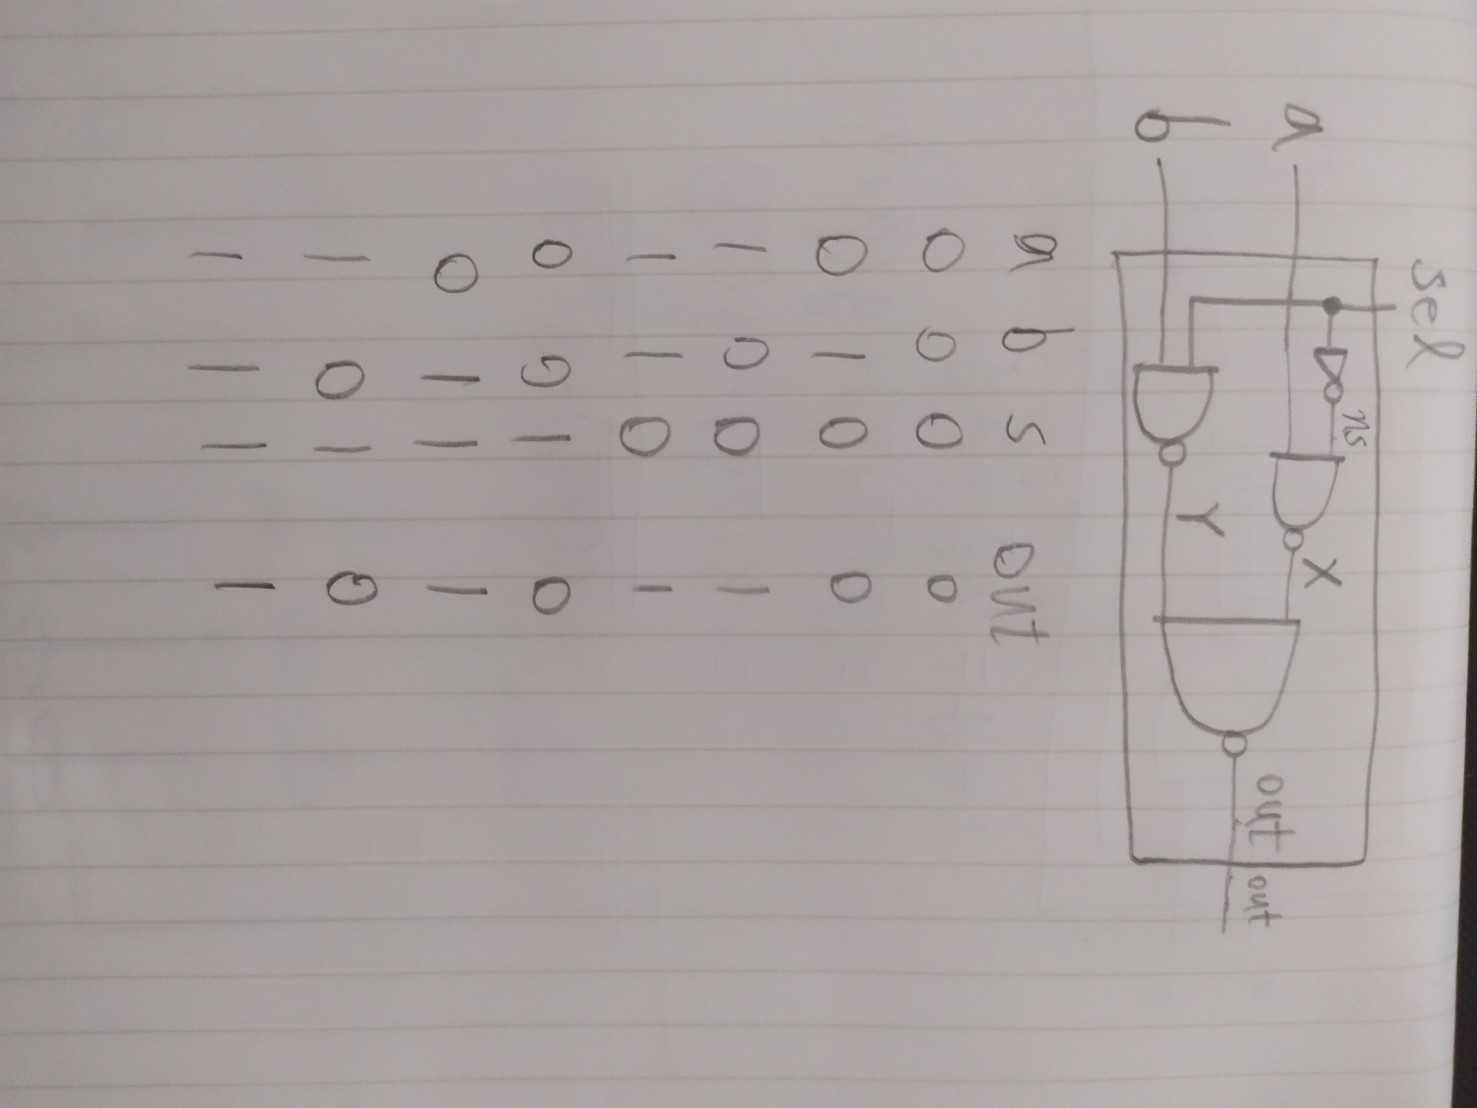 sel
a
ns
X
b
Y
out
out
a b s out
0 0 0 0
0 1 0 0
1 0 0 1
1 1 0 1
0 0 1 0
0 1 1 1
1 0 1 0
1 1 1 1